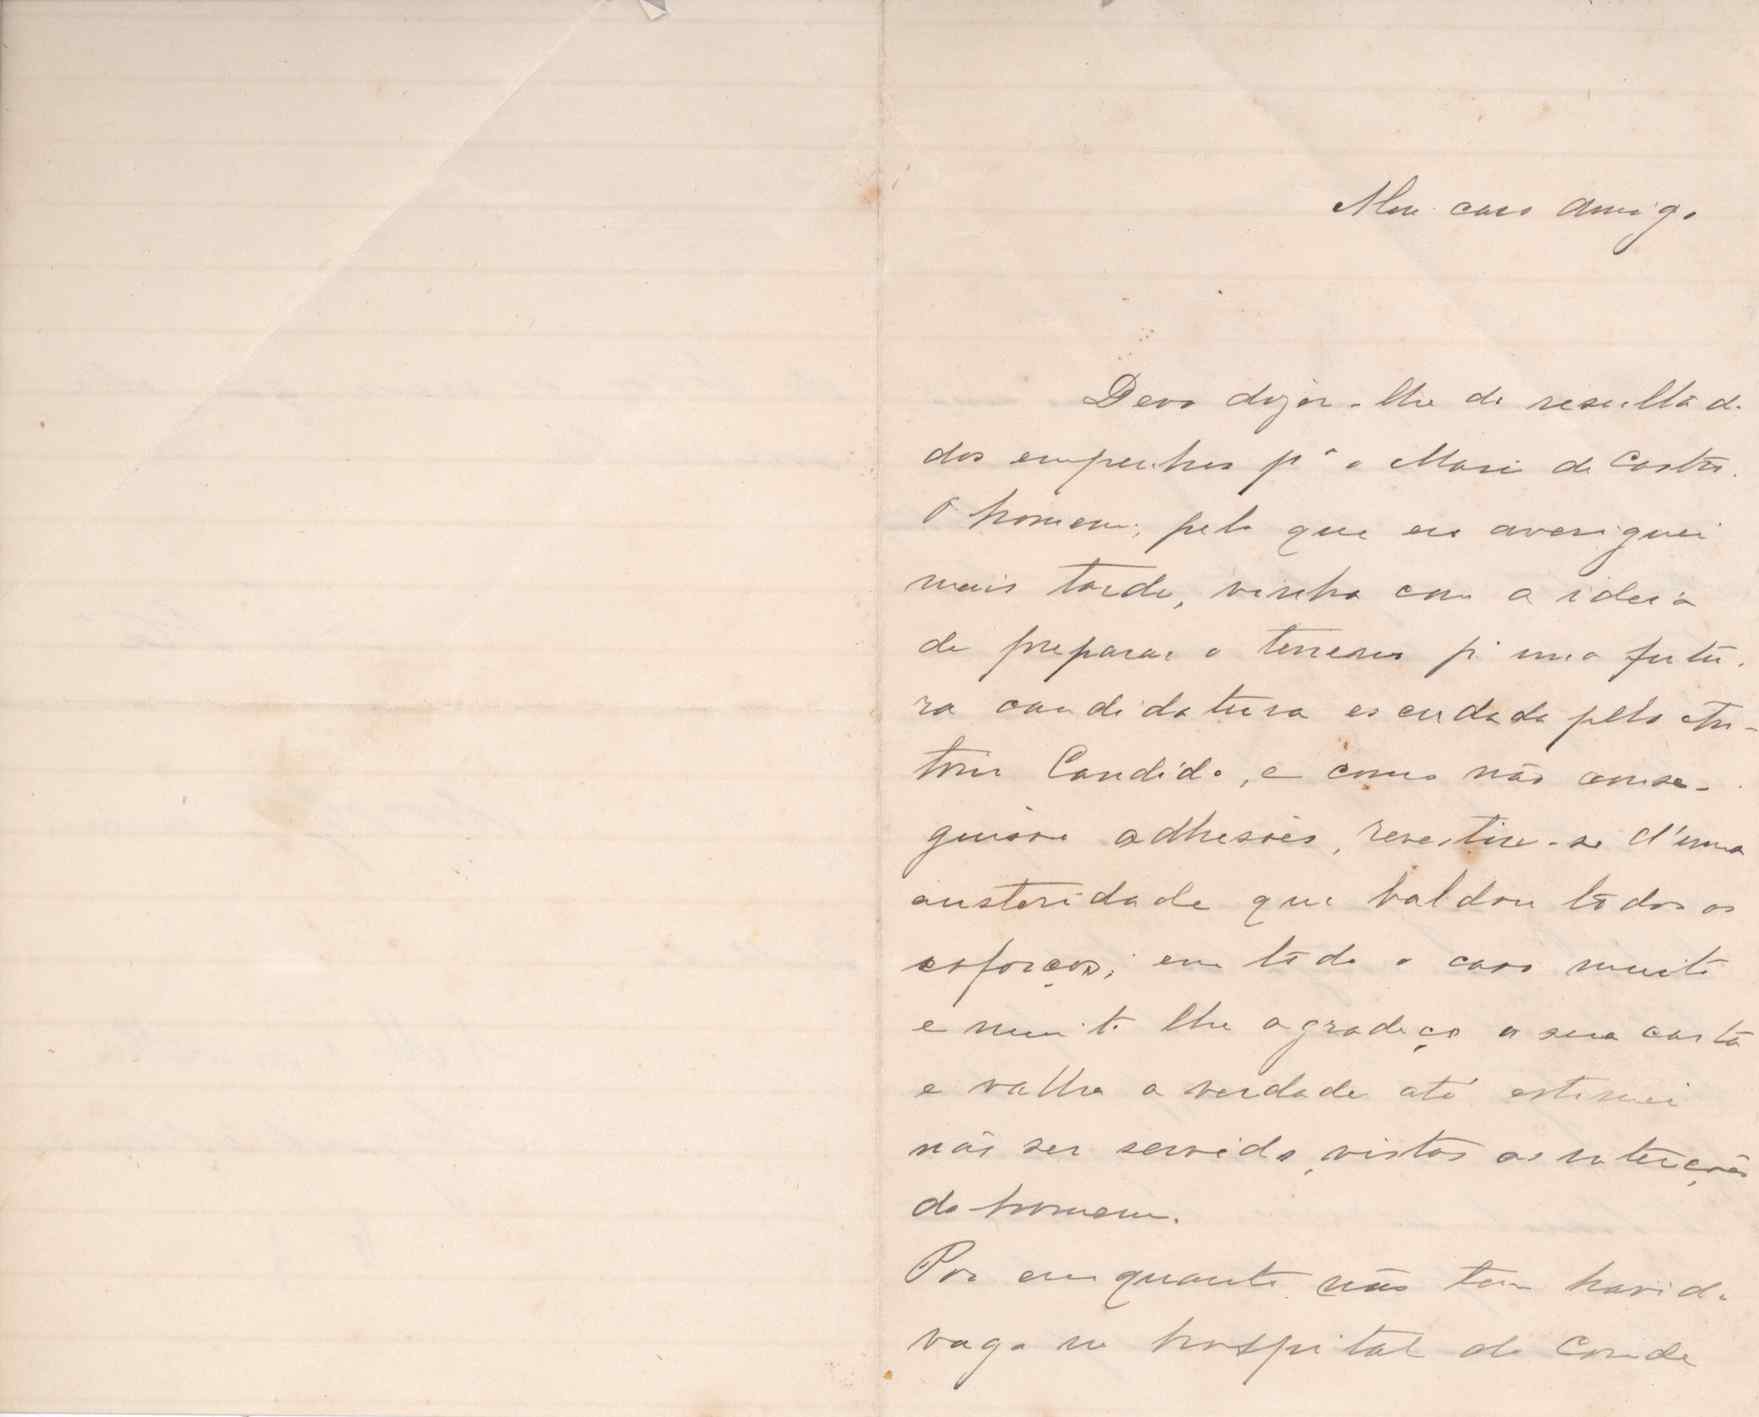 Meu caro Amigo
Devo dizer-lhe do resultado
dos empenhos pª o Mario de Castro.
O homem, pelo que eu averiguei
mais tarde, vinha com a ideia
de preparar o terreno pª uma futu-
ra candidatura escudada pelo An-
tonio Candido, e como não conse-
guisse adhesões, revestiu-se d'uma
austeridade que baldou todos os
esforços; em todo o caso muito
e muito lhe agradeço a sua carta
e valha a verdade até estimei
não ser servido, vistas as intenções
do homem.
Por emquanto não tem havido
vaga no hospital do Conde